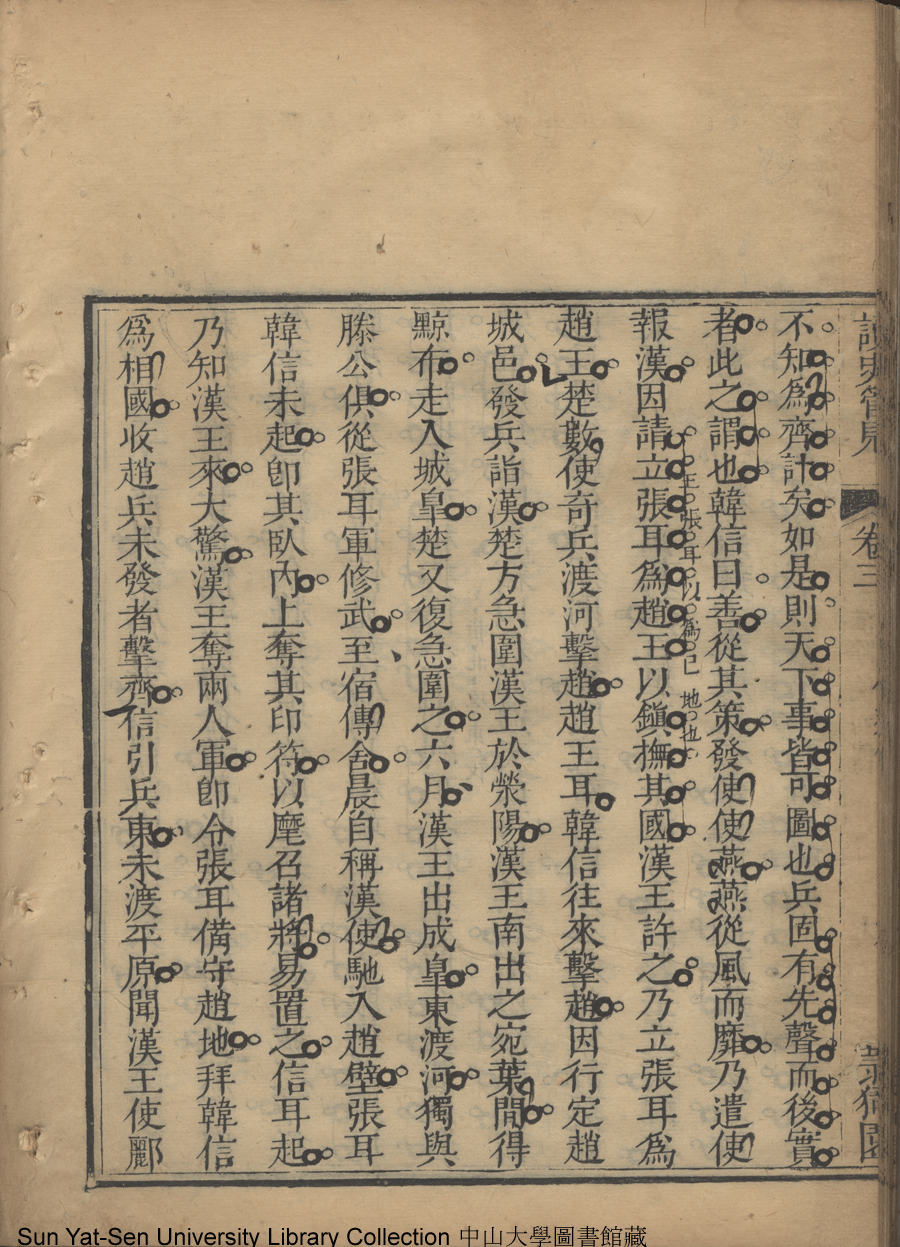 讀史管見 卷三
不知為齊計矣如是則天下事皆可圖也兵固有先聲而後實
者此之謂也韓信曰善從其策發使使燕燕從風而靡乃遣使
報漢因請立張耳為趙王以鎮撫其國漢王許之乃立張耳為
王張耳以為己地也
趙王楚數使奇兵渡河擊趙趙王耳韓信往來擊趙因行定趙
城邑發兵詣漢楚方急圍漢王於滎陽漢王南出之宛葉間得
黥布走入城皐楚又復急圍之六月漢王出成皐東渡河獨與
滕公俱從張耳軍修武至宿傳舍晨自稱漢使馳入趙壁張耳
韓信未起卽其臥內上奪其印符以麾召諸將易置之信耳起
乃知漢王來大驚漢王奪兩人軍卽令張耳備守趙地拜韓信
為相國收趙兵未發者擊齊信引兵東未渡平原聞漢王使酈
Sun Yat-Sen University Library Collection 中山大學圖書館藏